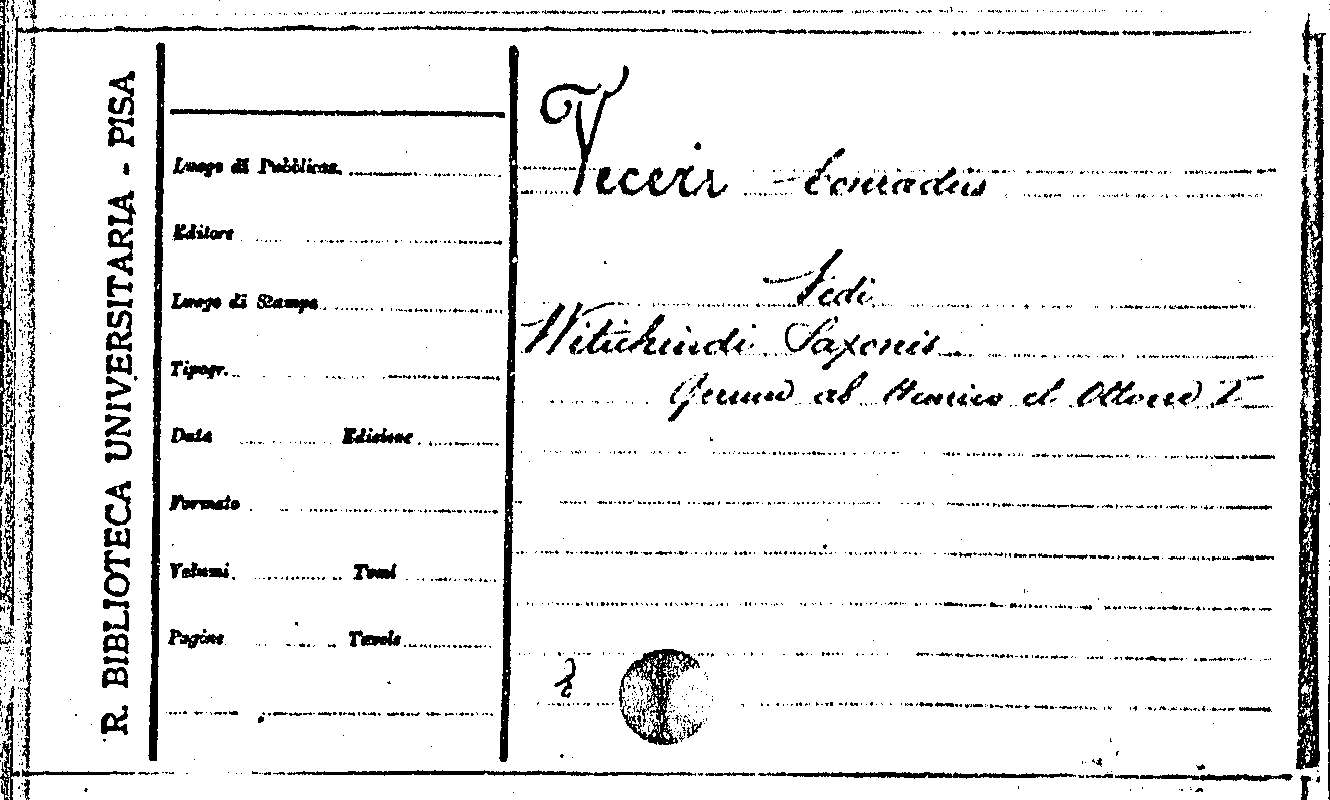 R. BIBLIOTECA UNIVERSITARIA - PISA
Luogo di Pubblicaz.
Editore
Luogo di Stampa
Tipogr.
Data Edizione
Formato
Volumi Tomi
Pagine Tavole
Veceri Conradus
Vedi
Witichindi Saxonis
Gerum ab Henrico et Ottone I